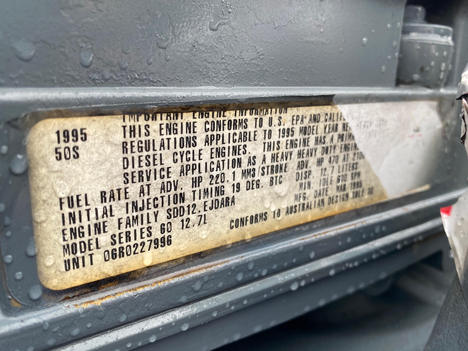 1995
50S
IMPORTANT ENGINE INFORMATION
THIS ENGINE CONFORMS TO U.S. EPA AND
REGULATIONS APPLICABLE TO 1995 MODEL YEAR
DIESEL CYCLE ENGINES. THIS ENGINE HAS A
SERVICE APPLICATION AS A HEAVY HEAVY
FUEL RATE AT ADV. HP 220.1 MM3/STROKE ADV HP 470
INITIAL INJECTION TIMING 19 DEG. BTC DISP. 12.7
ENGINE FAMILY SDD12.EJDARA
MODEL SERIES 60 12.7L
CONFORMS TO AUSTRALIAN DESIGN
UNIT 06R0227996